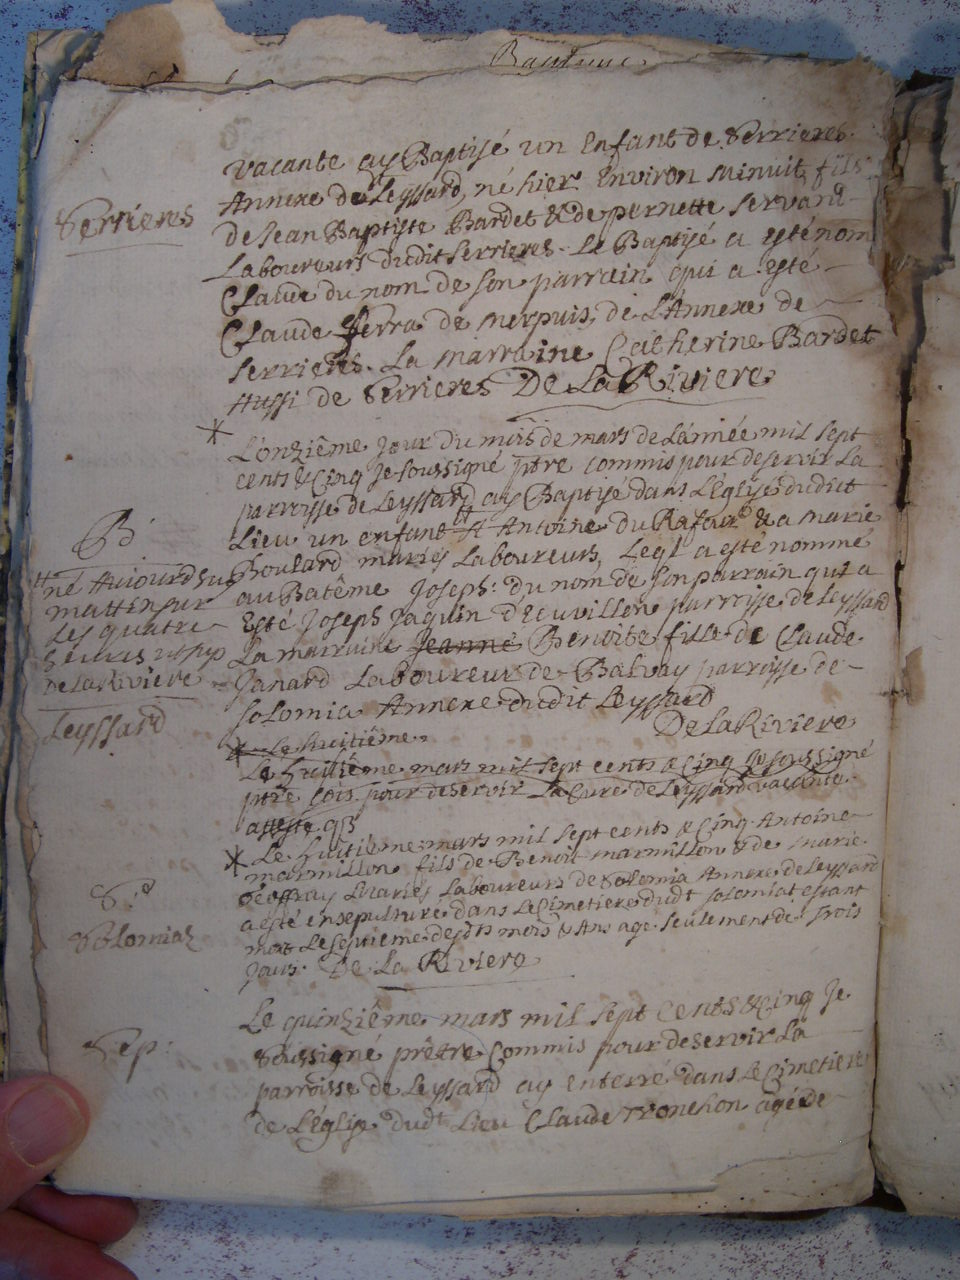 Serrieres
vacante ay Baptisé un Enfant de Serrieres
Annexe de Leyssard, né hier Environ Minuit fils
de Jean Baptiste Bardet & de pernette servand
Laboureurs dudit Serrieres. Le Baptisé a esté nom
Claude du nom de son parrain qui a esté
Claude ferra de merpuis, de L'Annexe de
serrieres. La marraine Catherine Bardet
Aussi de Serrieres De La Riviere
L'onziême jour du mois de mars de L'année mil sept
cents & Cinq Je soussigné ptre commis pour deservir La
parroisse de Leyssard ay Baptisé dans L'Eglise dudit
Lieu un enfant A Antoine Du & a Marie
Boulard mariés Laboureurs, Leql a esté nommé
au Batême Joseph: du nom de son parrain qui a
Esté Joseph Jaquin D'Ecuvillon parroisse de Leyssard
La marraine Jeanne Benoite fille de Claude
Janard Laboureur de Balvay parroisse de
solomia Annexe dudit Leyssard
De La Riviere
B
né Aujourdhuy
mattin sur
Les quatre
heures
De La Riviere
Leyssard
Le huitiême
Le huitiême mars mil sept cents & Cinq Je soussigné
ptre pour deservir La Cure de Leyssard vacante
atteste
Le huitiême mars mil sept cents & Cinq Antoine
marmillon fils de Benoit marmillon & de Marie
Geoffray Mariés Laboureurs de Solomia Annexe de Leyssard
a esté ensepulturé dans Le Cimetiere dudt solomiat estant
mort Le septieme desdts mois & An agé seulement de trois
jours. De La Riviere
Solomiaz
Le quinziême mars mil sept Cents & Cinq Je
Soussigné prêtre Commis pour deservir La
parroisse de Leyssard ay enterré dans Le Cimetiere
de L'église dudt Lieu Claude Tronchon agé de
Sep: